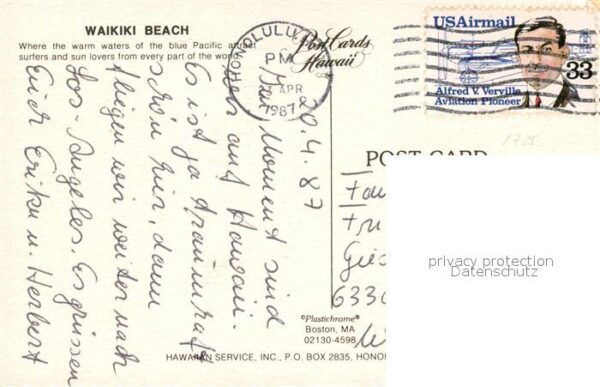 WAIKIKI BEACH
Where the warm waters of the blue Pacific attract
surfers and sun lovers from every part of the world
HONOLULU
PM
APR
1987
Post Cards
Hawaii
USAirmail
33
Alfred V. Verville
Aviation Pioneer
1725
20.4.87
Im Moment sind
wir auf Hawaii.
Es ist ja traumhaft
schön hier, dann
fliegen wir weiter nach
Los-Angeles. Es grüssen
Euch Erika u. Herbert
POST CARD
Fa
Gies
6330
privacy protection
Datenschutz
©Plastichrome®
Boston, MA
02130-4598
HAWAIIAN SERVICE, INC., P.O. BOX 2835, HONOL